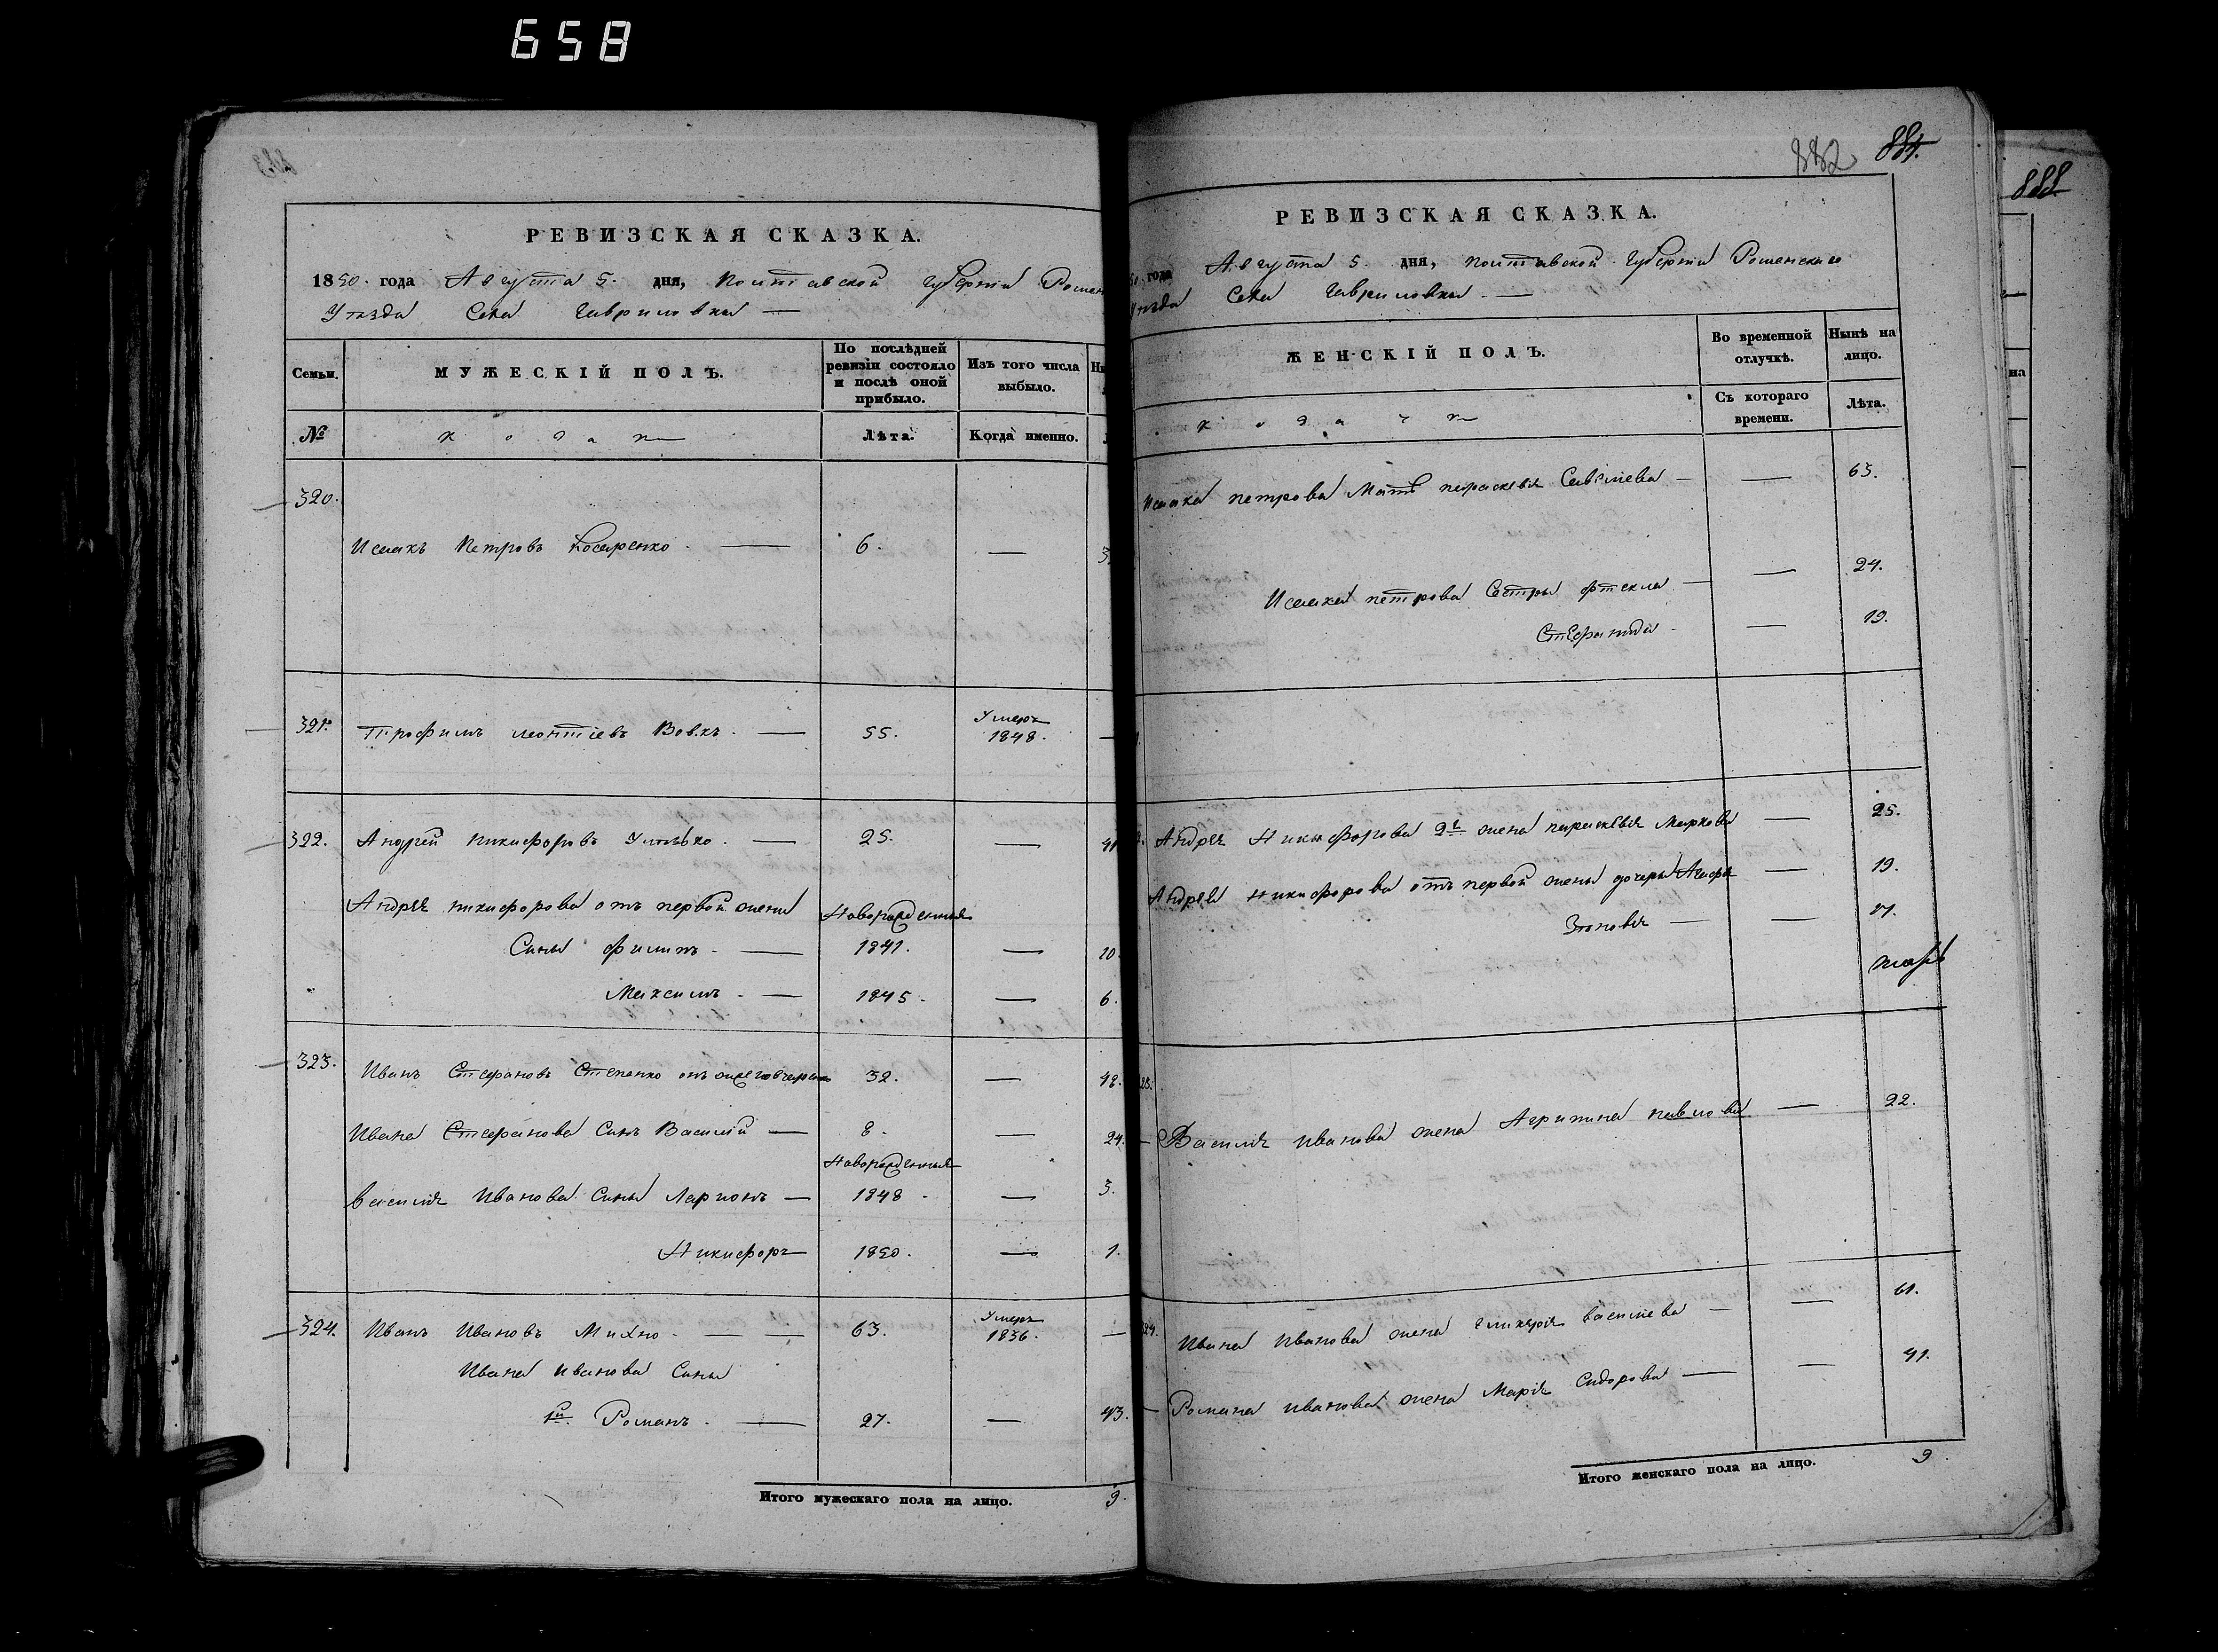 658
РЕВИЗСКАЯ СКАЗКА.
1850. года Августа 5. дня, Полтавской Губерніи Ромен
Уезда Села Гавриловки —
Семьи. МУЖЕСКІЙ ПОЛЪ. По послѣдней ревизіи состояло и послѣ оной прибыло. Изъ того числа выбыло.
№ козаки Лѣта. Когда именно.
320.
Исаакъ Петровъ Косаренко — 6. —
321. Трофимъ Леонтіевъ Вовкъ — 55. Умеръ 1848. —
322. Андрей Никифоровъ — 25. — 41
Андрея Никифорова отъ первой жены Новорожденныя
Сыны Филипъ — 1841. — 10.
Максимъ — 1845. — 6.
323. Иванъ Стефановъ Степенко онъ же 32. — 48.
Ивана Стефанова Сынъ Василій — 8. — 24.
Новорожденныя
Василия Иванова Сыны Ларионъ — 1848 — 3.
Никифоръ 1850. — 1.
324. Иванъ Ивановъ Михно — 63. Умеръ 1836. —
Ивана Иванова Сыны
1й Романъ — 27. — 43.
Итого мужескаго пола на лицо. 9.
882 884.
888
РЕВИЗСКАЯ СКАЗКА.
года Августа 5. дня, Полтавской Губерніи Роменскаго
Уезда Села Гавриловки —
ЖЕНСКІЙ ПОЛЪ. Во временной отлучкѣ. Нынѣ на лицо.
козачки Съ котораго времени. Лѣта.
Исаака Петрова Мать Параскевія Савелиева — — 63.
Исаака Петрова Сестры Фтекла — — 24.
Стефанида — — 19.
Андрея Никифорова 2я жена Параскевія Маркова — 25.
Андрея Никифорова отъ первой жены дочери Агафья — 19.
Зѣновія — — 17.
Василия Иванова жена Агрипина Павлова — 22.
324. Ивана Иванова жена Гликерія Василиева — — 61.
Романа Иванова жена Марія Сидорова — — 41.
Итого женскаго пола на лицо. 9